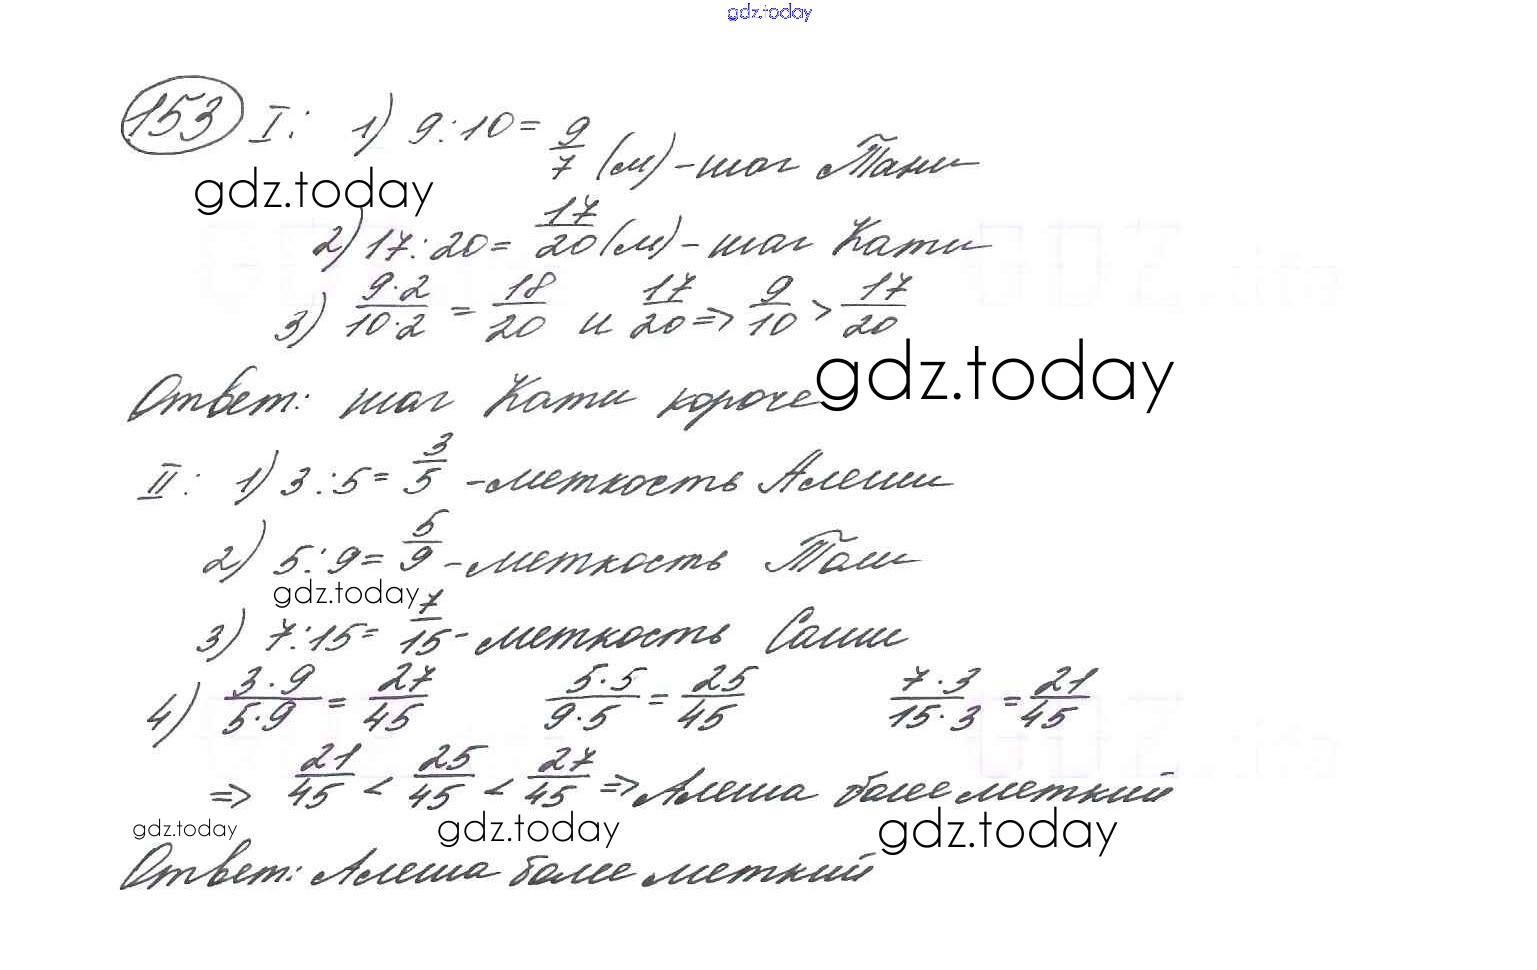 gdz.today
153 I: 1) 9:10 = 9/7 (м) - шаг Тани
gdz.today
2) 17:20 = 17/20 (м) - шаг Кати
3) 9·2/10·2 = 18/20 и 17/20 => 9/10 > 17/20
gdz.today
Ответ: шаг Кати короче
II: 1) 3:5 = 3/5 - меткость Алеши
2) 5:9 = 5/9 - меткость Толи
gdz.today
3) 7:15 = 7/15 - меткость Саши
4) 3·9/5·9 = 27/45 5·5/9·5 = 25/45 7·3/15·3 = 21/45
=> 21/45 < 25/45 < 27/45 => Алеша более меткий
gdz.today gdz.today gdz.today
Ответ: Алеша более меткий